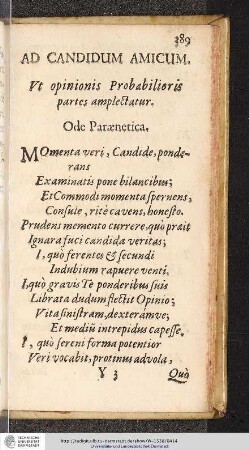 389
AD CANDIDUM AMICUM,
Vt opinionis Probabilioris
partes amplectatur.
Ode Parænetica.
MOmenta veri, Candide, ponde-
rans
Examinatis pone bilancibus;
Et Commodi momenta spernens,
Consule, ritè cavens, honesto.
Prudens memento currere, quò prait
Ignara fuci candida veritas;
I, quò ferentes & secundi
Indubium rapuere venti.
I, quò gravis Te ponderibus suis
Librata dudum flectit Opinio;
Vita sinistram, dexteramve;
Et mediũ intrepidus capesse.
I, quò sereni forma potentior
Veri vocabit, protinus advola,
Y 3 Quà
TECHNISCHE
UNIVERSITÄT
DARMSTADT
Universitäts- und Landesbibliothek Darmstadt